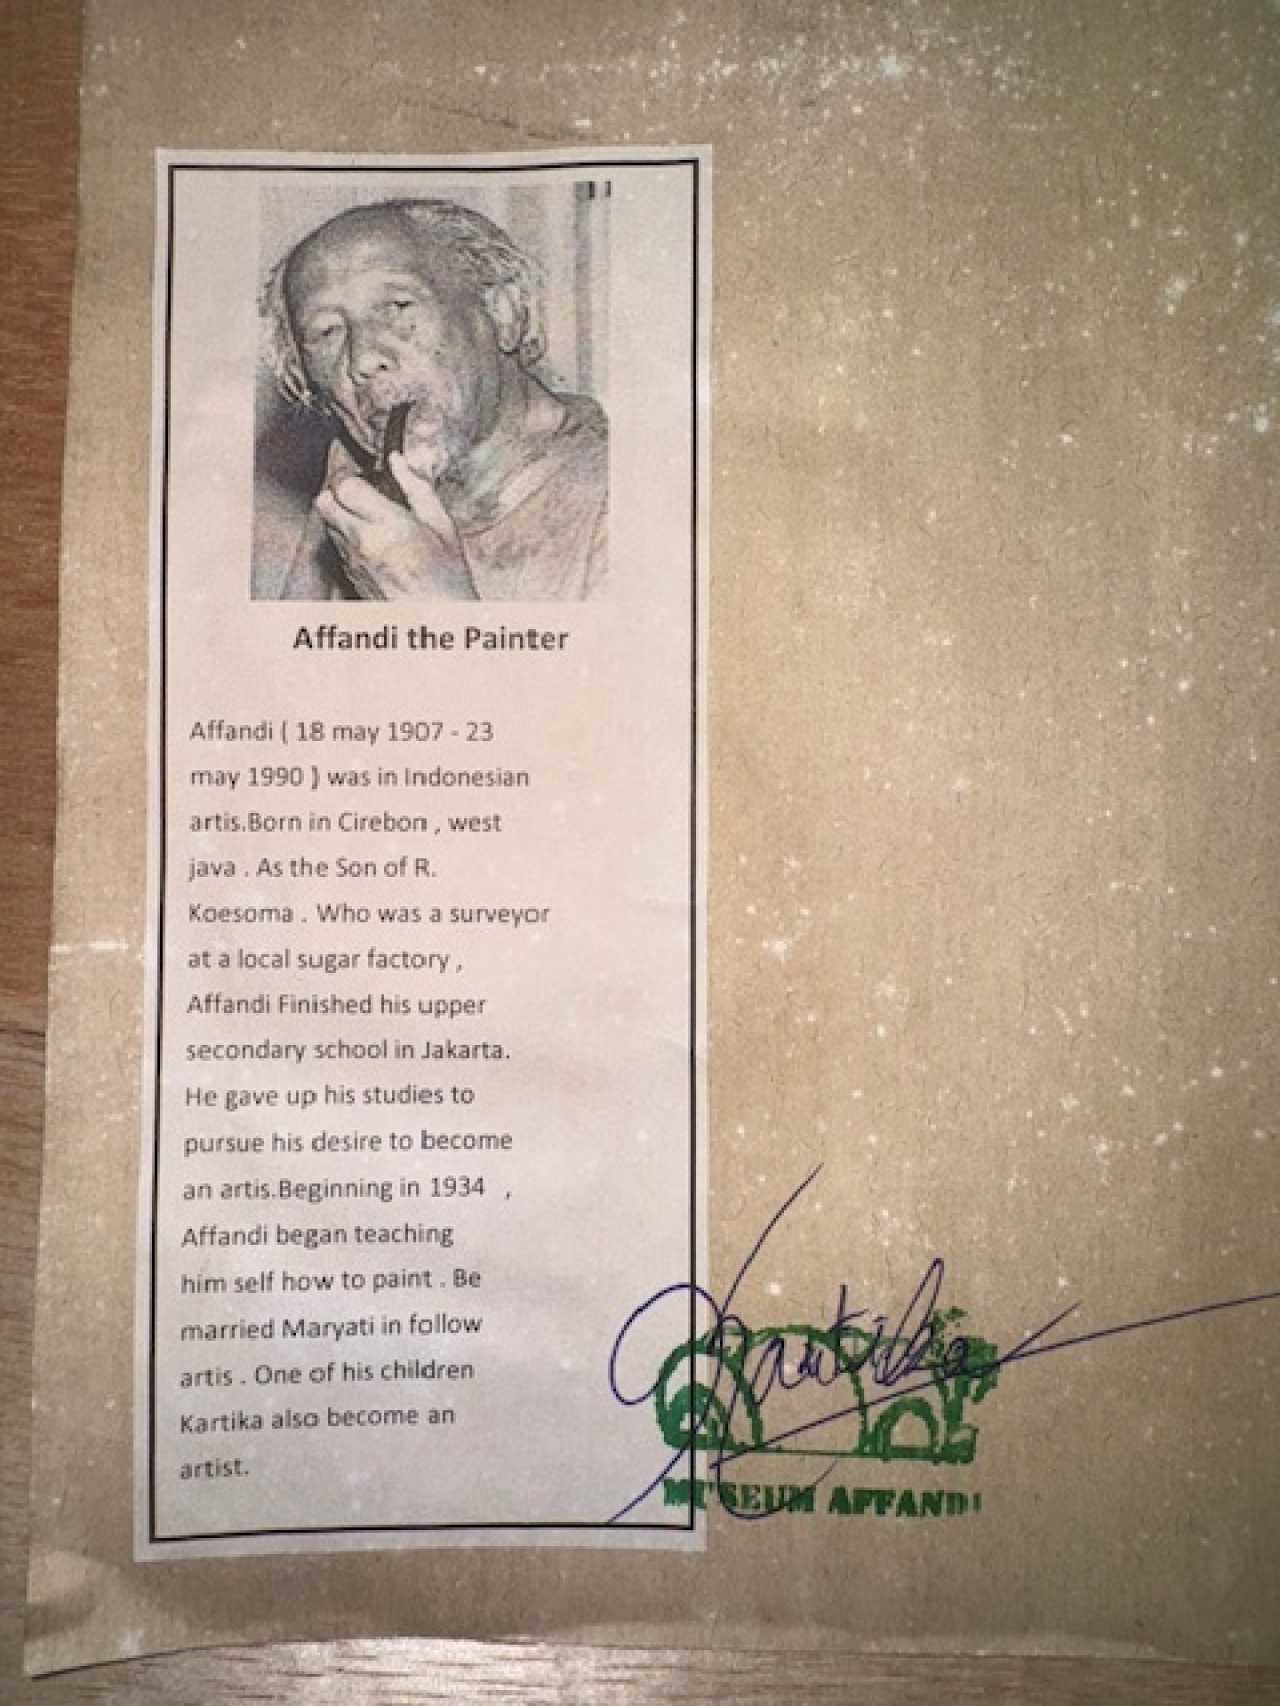 Affandi the Painter
Affandi ( 18 may 1907 - 23
may 1990 ) was in Indonesian
artis.Born in Cirebon , west
java . As the Son of R.
Koesoma . Who was a surveyor
at a local sugar factory ,
Affandi Finished his upper
secondary school in Jakarta.
He gave up his studies to
pursue his desire to become
an artis.Beginning in 1934 ,
Affandi began teaching
him self how to paint . Be
married Maryati in follow
artis . One of his children
Kartika also become an
artist.
Kartika
MUSEUM AFFANDI